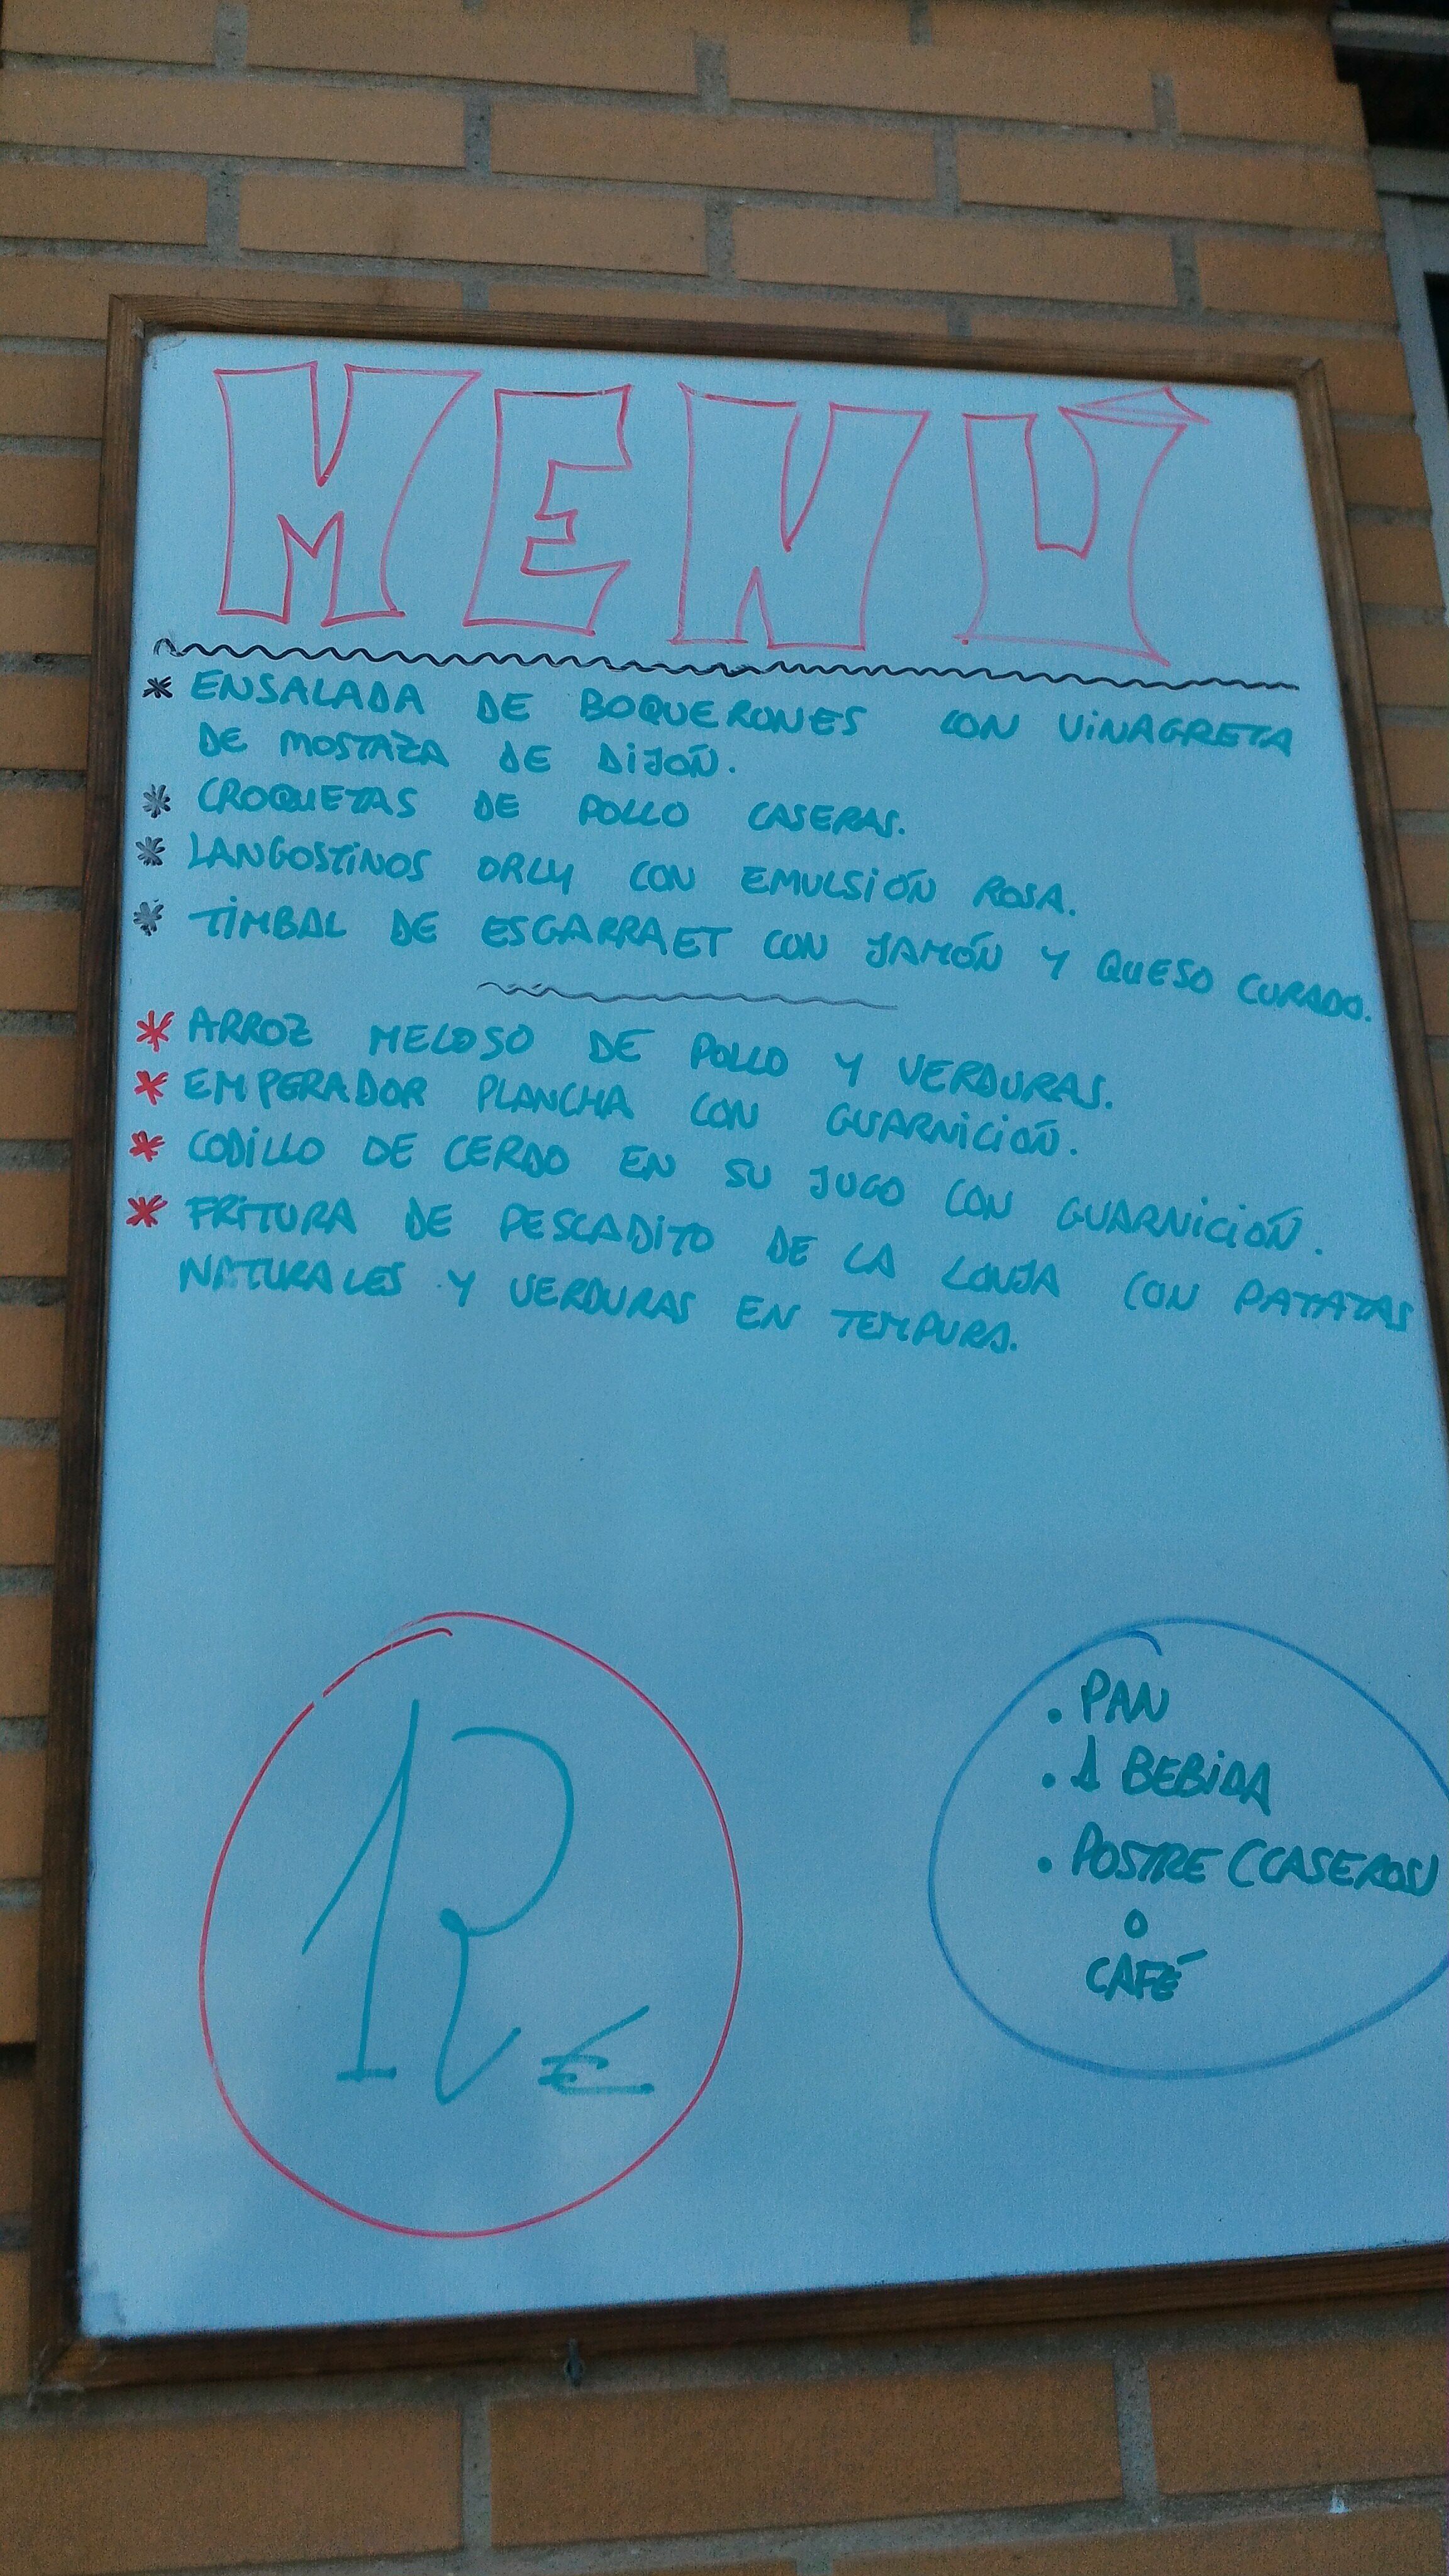 MENÚ
* ENSALADA DE BOQUERONES CON VINAGRETA
DE MOSTAZA DE DIJOÑ.
* CROQUETAS DE POLLO CASERAS.
* LANGOSTINOS ORLY CON EMULSIÓN ROSA.
* TIMBAL DE ESGARRAET CON JAMÓN Y QUESO CURADO.
* ARROZ MELOSO DE POLLO Y VERDURAS.
* EMPERADOR PLANCHA CON GUARNICIÓN.
* CODILLO DE CERDO EN SU JUGO CON GUARNICIÓN.
* FRITURA DE PESCADITO DE LA LONJA CON PATATAS
NATURALES Y VERDURAS EN TEMPURA.
12 €
. PAN
. 1 BEBIDA
. POSTRE (CASEROS)
O
CAFÉ